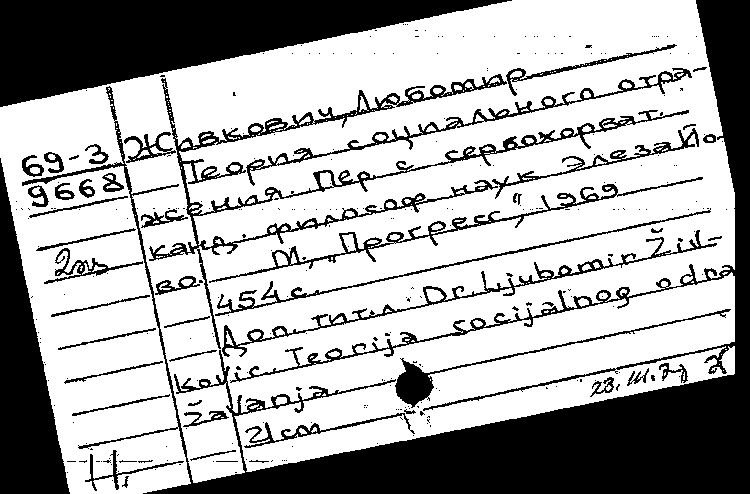 69-3
9668
2 экз
Живкович, Любомир
Теория социального отра-
жения. Пер с сербохорват.
канд. философ наук Элеза Йо-
во. М., „Прогресс“, 1969
454 с.
Доп. тит. л. Dr. Ljubomir Živ-
kovic. Teorija socijalnog odra
žavanja.
21 cm
Н.